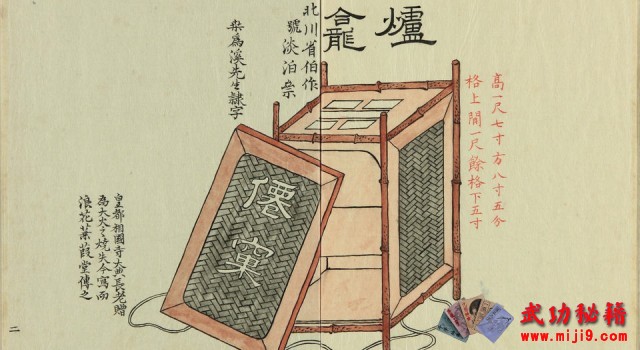 爐龕
高一尺七寸方八寸五分
格上間一尺餘格下五寸
北川省伯作
號淡泊
桒為溪先生隸字
僊窠
皇都相國寺大典長老贈
焉大火之燒失今寫而
浪花蒹葭堂傳之
二
武功秘籍
www.miji9.com